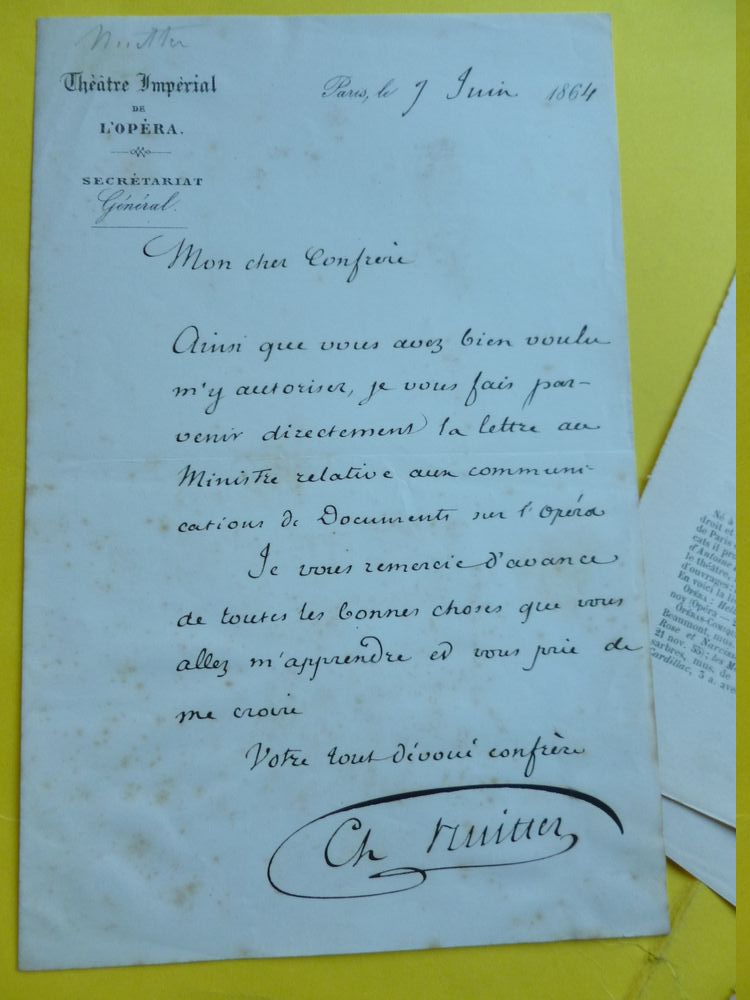 Nuitter
Théâtre Impérial
DE
L'OPÉRA.
SECRÉTARIAT
Général.
Paris, le 7 Juin 1864
Mon cher Confrère
Ainsi que vous avez bien voulu
m'y autoriser, je vous fais par-
venir directement la lettre au
Ministre relative aux communi-
cations de Documents sur l'Opéra
Je vous remercie d'avance
de toutes les bonnes choses que vous
allez m'apprendre et vous prie de
me croire
Votre tout dévoué confrère
Ch Nuitter
Né à
droit et
de Paris
cats il pr
d'Antoine
le théâtre,
d'ouvrages
En voici la li
OPÉRA: Heli
noy (Opéra — 2
OPÉRAS-COMIQU
Beaumont, mus.
Rose et Narciss
21 nov. 55; les M
sarbres, mus. de
Cardillac, 3 a. ave